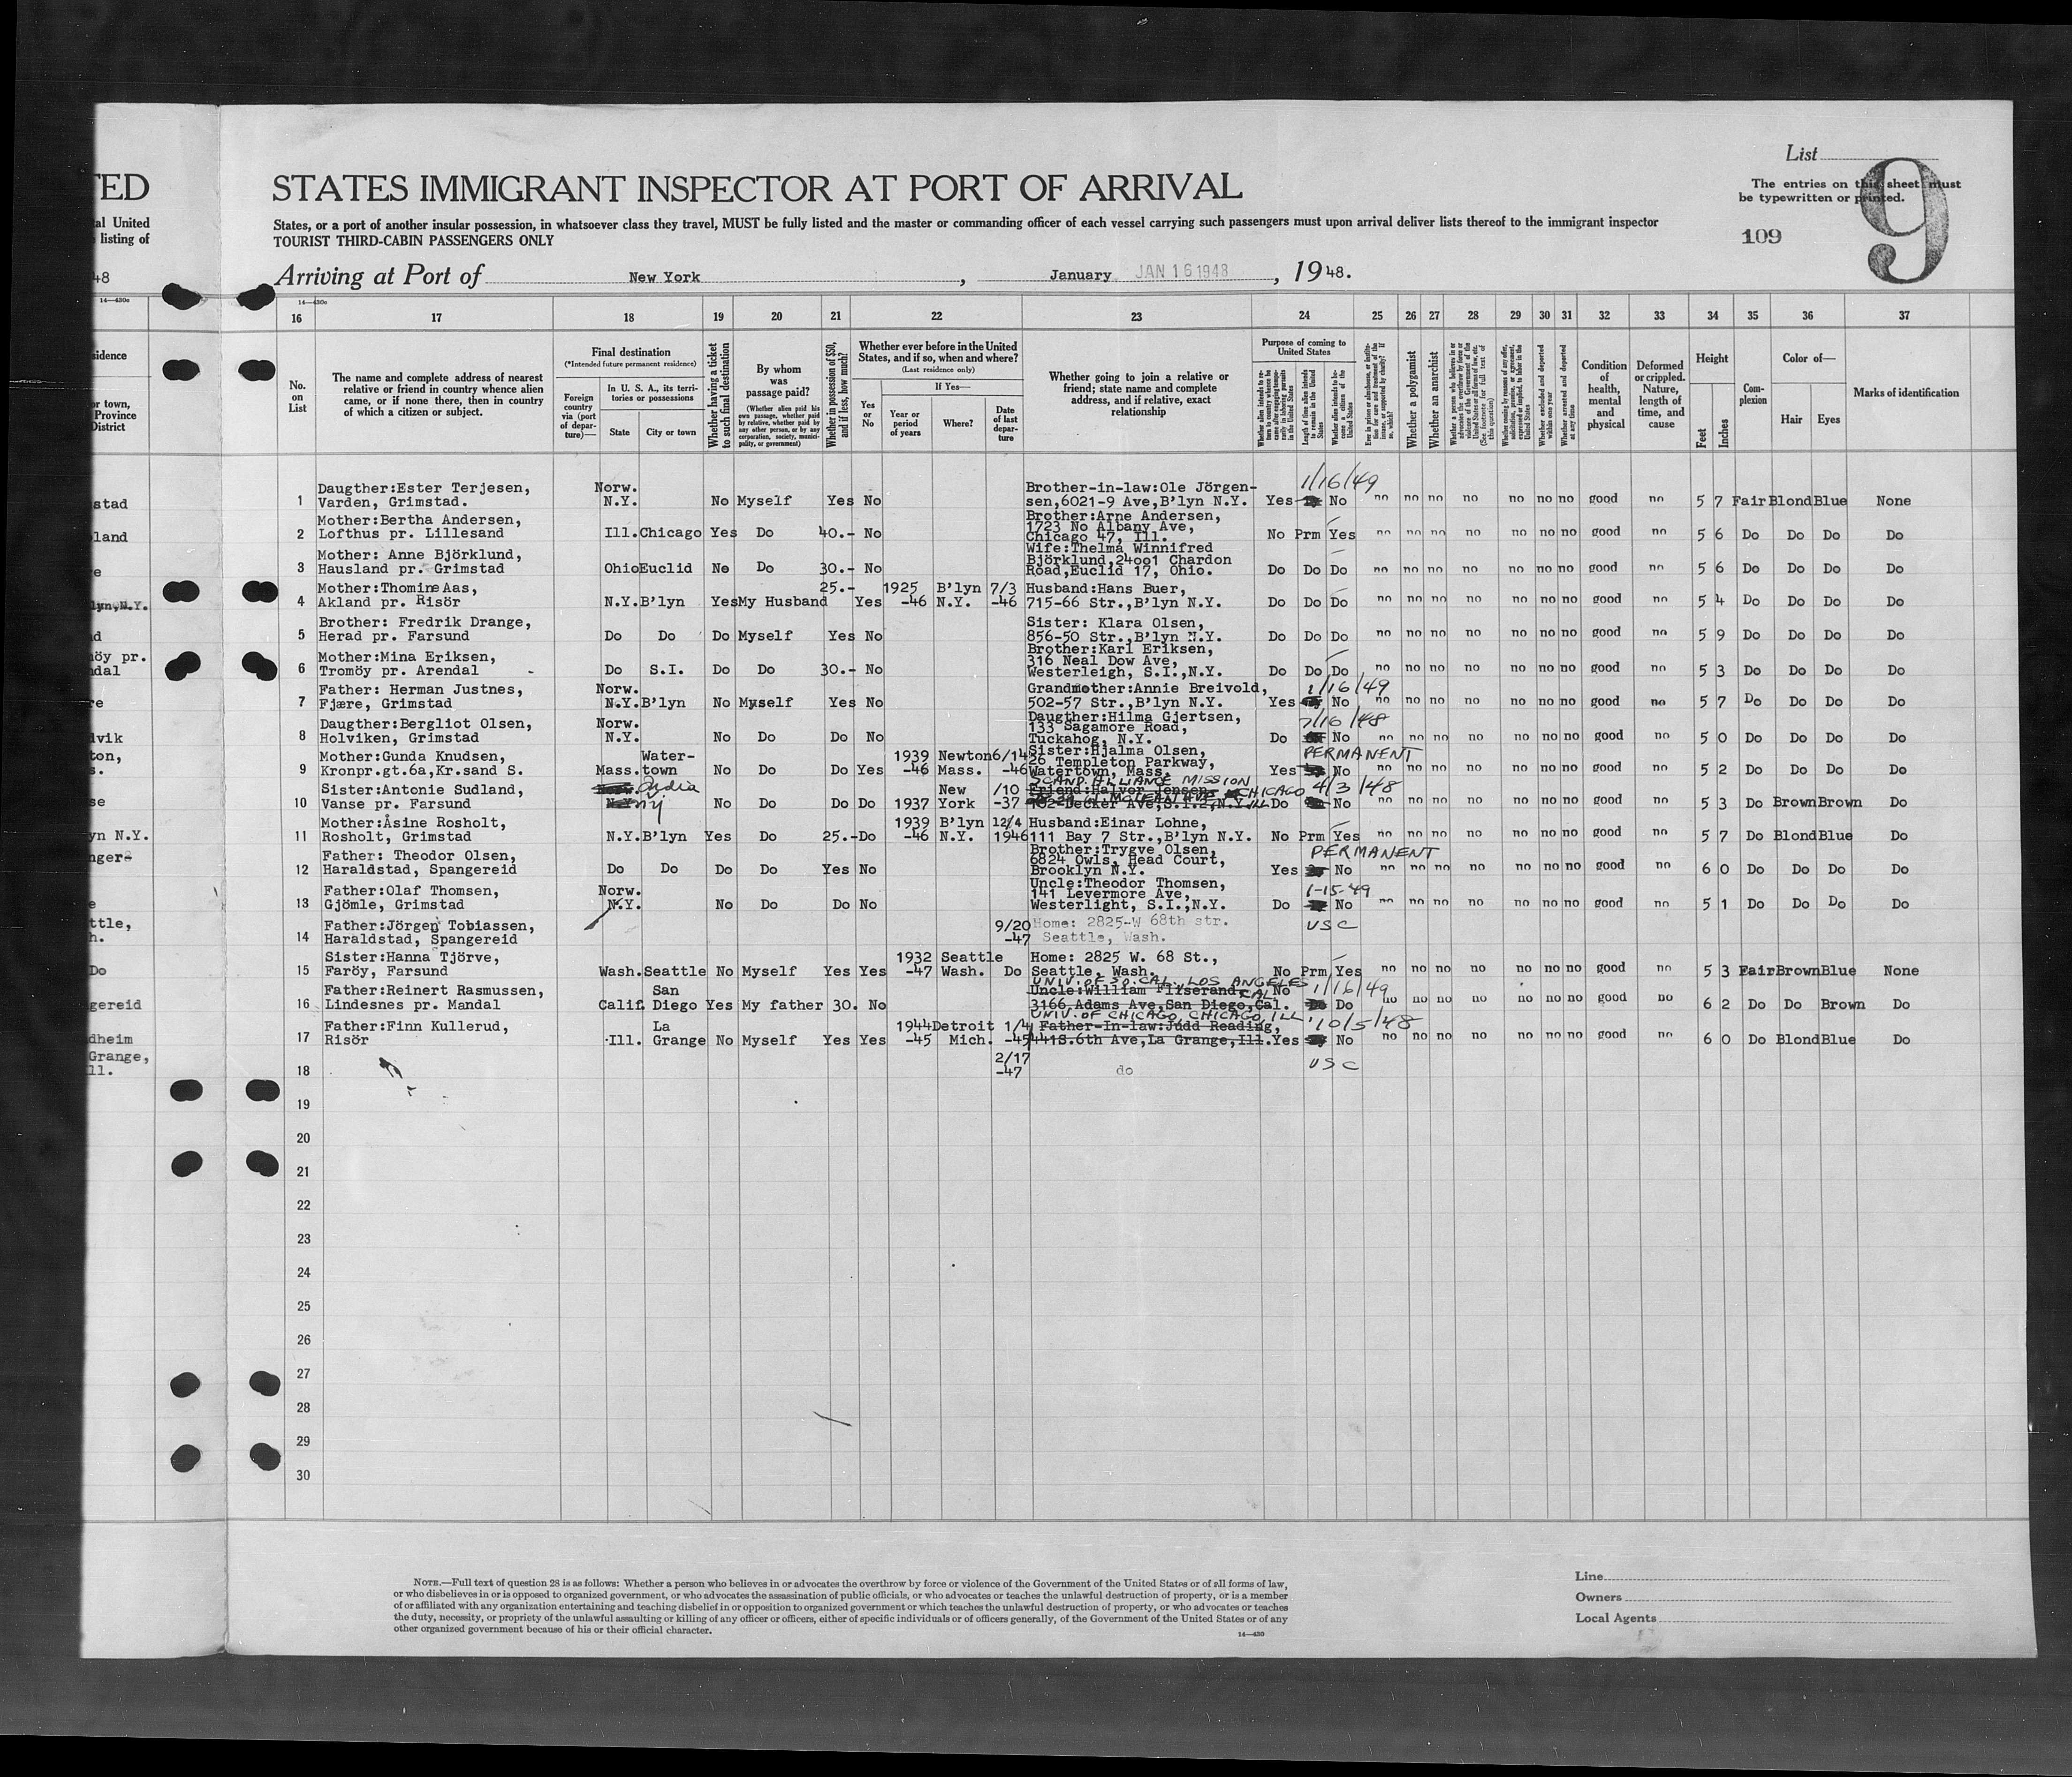 List
TED STATES IMMIGRANT INSPECTOR AT PORT OF ARRIVAL
9
The entries on this sheet must
be typewritten or printed.
al United States, or a port of another insular possession, in whatsoever class they travel, MUST be fully listed and the master or commanding officer of each vessel carrying such passengers must upon arrival deliver lists thereof to the immigrant inspector
listing of TOURIST THIRD-CABIN PASSENGERS ONLY
109
48 Arriving at Port of New York, January JAN 16 1948, 1948.
14—430c 14—430c
16 17 18 19 20 21 22 23 24 25 26 27 28 29 30 31 32 33 34 35 36 37
No. on List
The name and complete address of nearest
relative or friend in country whence alien
came, or if none there, then in country
of which a citizen or subject.
Final destination
(*Intended future permanent residence)
Foreign country via (port of departure)—
In U. S. A., its territories or possessions
State City or town
Whether having a ticket to such final destination
By whom was passage paid?
(Whether alien paid his own passage, whether paid by relative, whether paid by any other person, or by any corporation, society, municipality, or government)
Whether in possession of $50, and if less, how much?
Whether ever before in the United
States, and if so, when and where?
(Last residence only)
Yes or No
If Yes—
Year or period of years Where? Date of last departure
Whether going to join a relative or
friend; state name and complete
address, and if relative, exact
relationship
Purpose of coming to United States
Length of time alien intends to remain in the United States
Whether alien intends to become a citizen of the United States
Whether a polygamist
Whether an anarchist
Whether excluded and deported within one year
Whether arrested and deported at any time
Condition of health, mental and physical
Deformed or crippled. Nature, length of time, and cause
Height
Feet Inches
Complexion
Color of—
Hair Eyes
Marks of identification
1/16/49
Daugther:Ester Terjesen, Norw. Brother-in-law:Ole Jörgen-
stad 1 Varden, Grimstad. N.Y. No Myself Yes No sen,6021-9 Ave,B'lyn N.Y. Yes No no no no no no no no good no 5 7 Fair Blond Blue None
Mother:Bertha Andersen, Brother:Arne Andersen,
1723 No Albany Ave,
land 2 Lofthus pr. Lillesand Ill. Chicago Yes Do 40.- No Chicago 47, Ill. No Prm Yes no no no no no no no good no 5 6 Do Do Do Do
Mother: Anne Björklund, Wife:Thelma Winnifred
Björklund,24001 Chardon
3 Hausland pr. Grimstad Ohio Euclid No Do 30.- No Road,Euclid 17, Ohio. Do Do Do no no no no no no no good no 5 6 Do Do Do Do
Mother:Thomine Aas, 25.- 1925 B'lyn 7/3 Husband:Hans Buer,
lyn,N.Y. 4 Akland pr. Risör N.Y. B'lyn Yes My Husband Yes -46 N.Y. -46 715-66 Str.,B'lyn N.Y. Do Do Do no no no no no no no good no 5 4 Do Do Do Do
Brother: Fredrik Drange, Sister: Klara Olsen,
5 Herad pr. Farsund Do Do Do Myself Yes No 856-50 Str.,B'lyn N.Y. Do Do Do no no no no no no no good no 5 9 Do Do Do Do
öy pr. Mother:Mina Eriksen, Brother:Karl Eriksen,
316 Neal Dow Ave,
dal 6 Tromöy pr. Arendal Do S.I. Do Do 30.- No Westerleigh, S.I.,N.Y. Do Do Do no no no no no no no good no 5 3 Do Do Do Do
Father: Herman Justnes, Norw. Grandmother:Annie Breivold, 1/16/49
7 Fjære, Grimstad N.Y. B'lyn No Myself Yes No 502-57 Str.,B'lyn N.Y. Yes No no no no no no no no good no 5 7 Do Do Do Do
Daugther:Bergliot Olsen, Norw. Daugther:Hilma Gjertsen, 7/16/48
133 Sagamore Road,
dvik 8 Holviken, Grimstad N.Y. No Do Do No Tuckahog, N.Y. Do No no no no no no no no good no 5 0 Do Do Do Do
ton, Mother:Gunda Knudsen, Water- 1939 Newton 6/14 Sister:Hjalma Olsen, PERMANENT
26 Templeton Parkway,
s. 9 Kronpr.gt.6a,Kr.sand S. Mass. town No Do Do Yes -46 Mass. -46 Watertown, Mass. Yes No no no no no no no no good no 5 2 Do Do Do Do
SCAND. ALLIANCE MISSION
Sister:Antonie Sudland, India New /10 Friend:Halvor Jensen, CHICAGO 4/3/48
se 10 Vanse pr. Farsund N.Y. NY No Do Do Do 1937 York -37 Decker Ave,S.I.,N.Y. ILL Do No no no no no no no no good no 5 3 Do Brown Brown Do
Mother:Åsine Rosholt, 1939 B'lyn 12/4 Husband:Einar Lohne,
yn N.Y. 11 Rosholt, Grimstad N.Y. B'lyn Yes Do 25.- Do -46 N.Y. 1946 111 Bay 7 Str.,B'lyn N.Y. No Prm Yes no no no no no no no good no 5 7 Do Blond Blue Do
nger- Father: Theodor Olsen, Brother:Trygve Olsen, PERMANENT
6824 Owls, Head Court,
12 Haraldstad, Spangereid Do Do Do Do Yes No Brooklyn N.Y. Yes No no no no no no no no good no 6 0 Do Do Do Do
Father:Olaf Thomsen, Norw. Uncle:Theodor Thomsen, 1-15-49
141 Levermore Ave,
e 13 Gjömle, Grimstad N.Y. No Do Do No Westerlight, S.I.,N.Y. Do No no no no no no no no good no 5 1 Do Do Do Do
ttle, Father:Jörgen Tobiassen, 9/20 Home: 2825-W 68th str. USC
h. 14 Haraldstad, Spangereid -47 Seattle, Wash.
Sister:Hanna Tjörve, 1932 Seattle Home: 2825 W. 68 St.,
Do 15 Faröy, Farsund Wash. Seattle No Myself Yes Yes -47 Wash. Do Seattle, Wash. No Prm Yes no no no no no no no good no 5 3 Fair Brown Blue None
UNIV. OF SO. CAL. LOS ANGELES
Father:Reinert Rasmussen, San Uncle:William Flyserand, CAL No 1/16/49
gereid 16 Lindesnes pr. Mandal Calif. Diego Yes My father 30. No 3166 Adams Ave,San Diego,Cal. Do no no no no no no no good no 6 2 Do Do Brown Do
UNIV. OF CHICAGO, CHICAGO, ILL.
Father:Finn Kullerud, La 1944 Detroit 1/4 Father-In-law:Judd Reading, 10/5/48
dheim 17 Risör Ill. Grange No Myself Yes Yes -45 Mich. -45 441S.6th Ave,La Grange,Ill. Yes No no no no no no no no good no 6 0 Do Blond Blue Do
Grange, 2/17 USC
ll. 18 -47 do
19
20
21
22
23
24
25
26
27
28
29
30
NOTE.—Full text of question 28 is as follows: Whether a person who believes in or advocates the overthrow by force or violence of the Government of the United States or of all forms of law,
or who disbelieves in or is opposed to organized government, or who advocates the assassination of public officials, or who advocates or teaches the unlawful destruction of property, or is a member
of or affiliated with any organization entertaining and teaching disbelief in or opposition to organized government or which teaches the unlawful destruction of property, or who advocates or teaches
the duty, necessity, or propriety of the unlawful assaulting or killing of any officer or officers, either of specific individuals or of officers generally, of the Government of the United States or of any
other organized government because of his or their official character.
14—430
Line
Owners
Local Agents